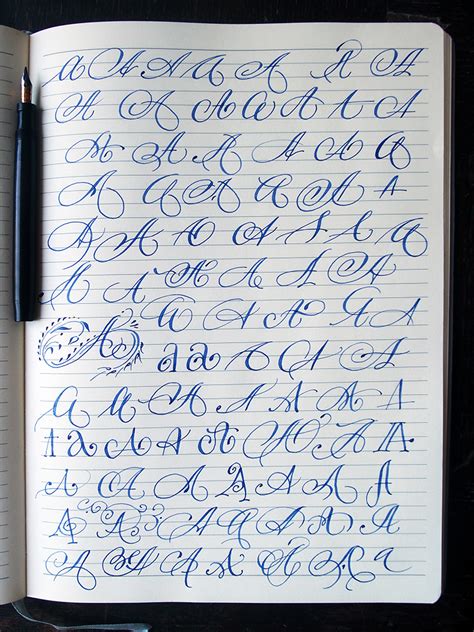 a A A A A A A
A A A A A A A
A A A A A A A
A A A A A A A
A A A A A A A A
A A A A A A A A
A A A A A
A a a A A A A
A A A A A A A A
a a A A A A A A A
A A A A A A A A
A A A A A A A A
A A A A A A A a